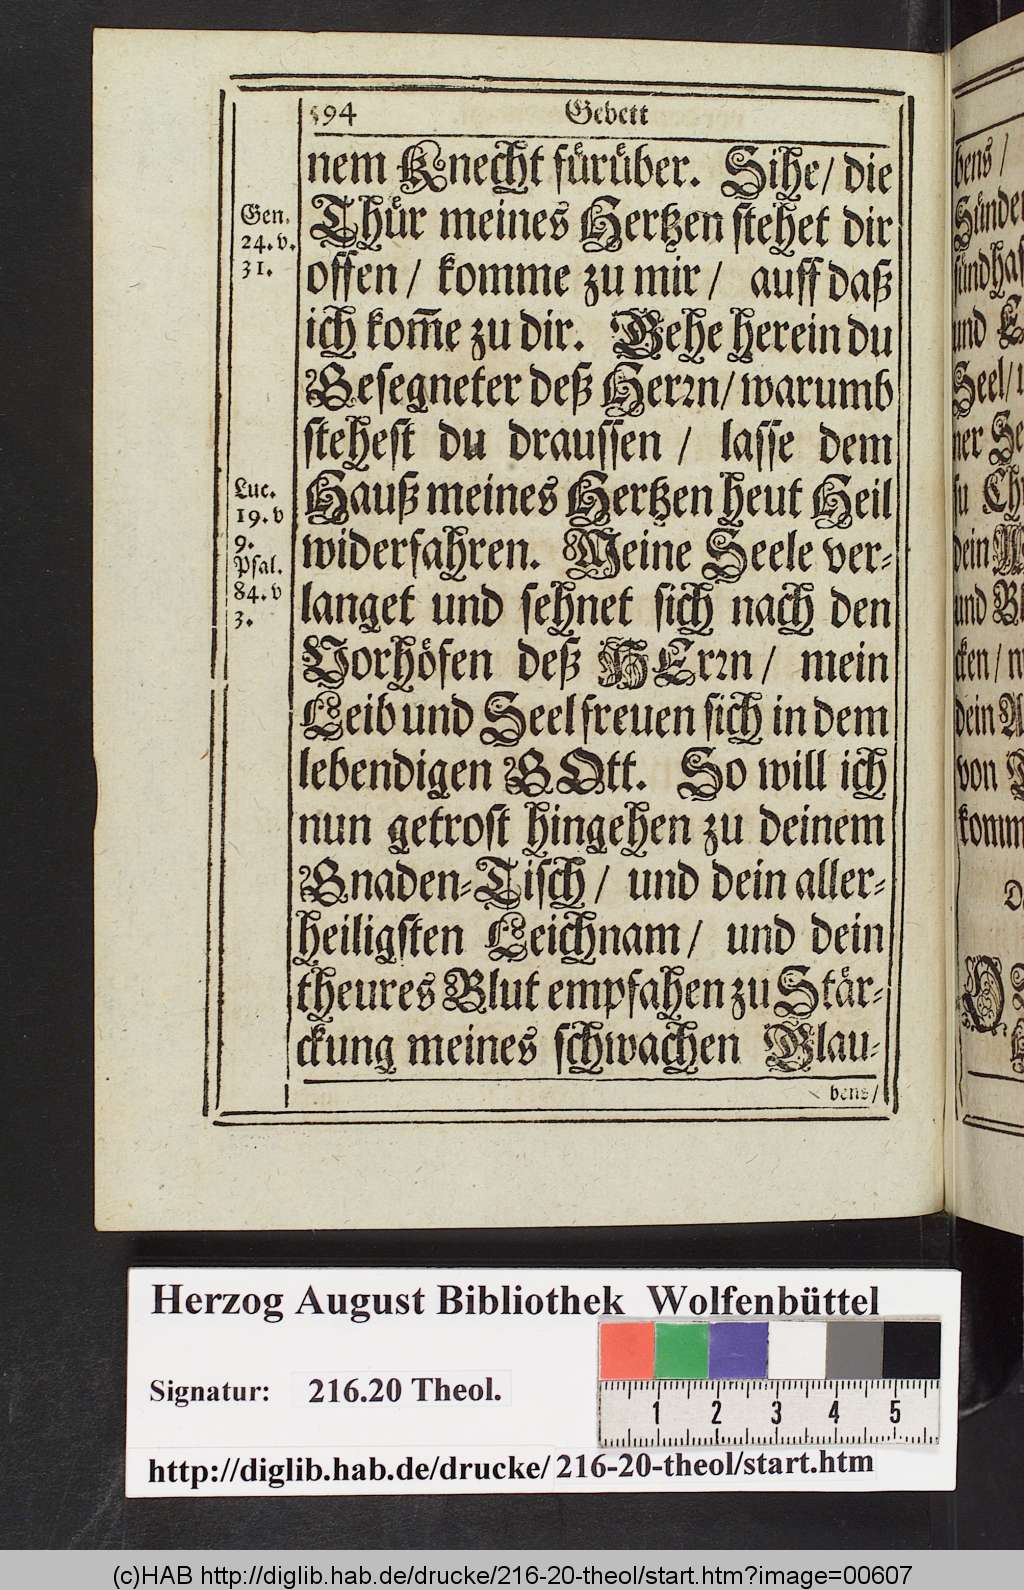 594 Gebett
nem Knecht fürüber. Sihe/ die
Thür meines Hertzen stehet dir
offen/ komme zu mir/ auff daß
ich kom̅e zu dir. Gehe herein du
Gesegneter deß Herrn/ warumb
stehest du draussen/ lasse dem
Hauß meines Hertzen heut Heil
widerfahren. Meine Seele ver-
langet und sehnet sich nach den
Vorhöfen deß HErrn/ mein
Leib und Seel freuen sich in dem
lebendigen GOtt. So will ich
nun getrost hingehen zu deinem
Gnaden-Tisch/ und dein aller-
heiligsten Leichnam/ und dein
theures Blut empfahen zu Stär-
ckung meines schwachen Glau-
bens/
Gen.
24. v.
31.
Luc.
19. v
9.
Psal.
84. v
3.
bens/
Sünde
sündhaf
und
Seel/
ner Se
su Ch
dein
und
cken/
dein
von
komm
Herzog August Bibliothek Wolfenbüttel
Signatur: 216.20 Theol.
1 2 3 4 5
http://diglib.hab.de/drucke/216-20-theol/start.htm
(c)HAB http://diglib.hab.de/drucke/216-20-theol/start.htm?image=00607